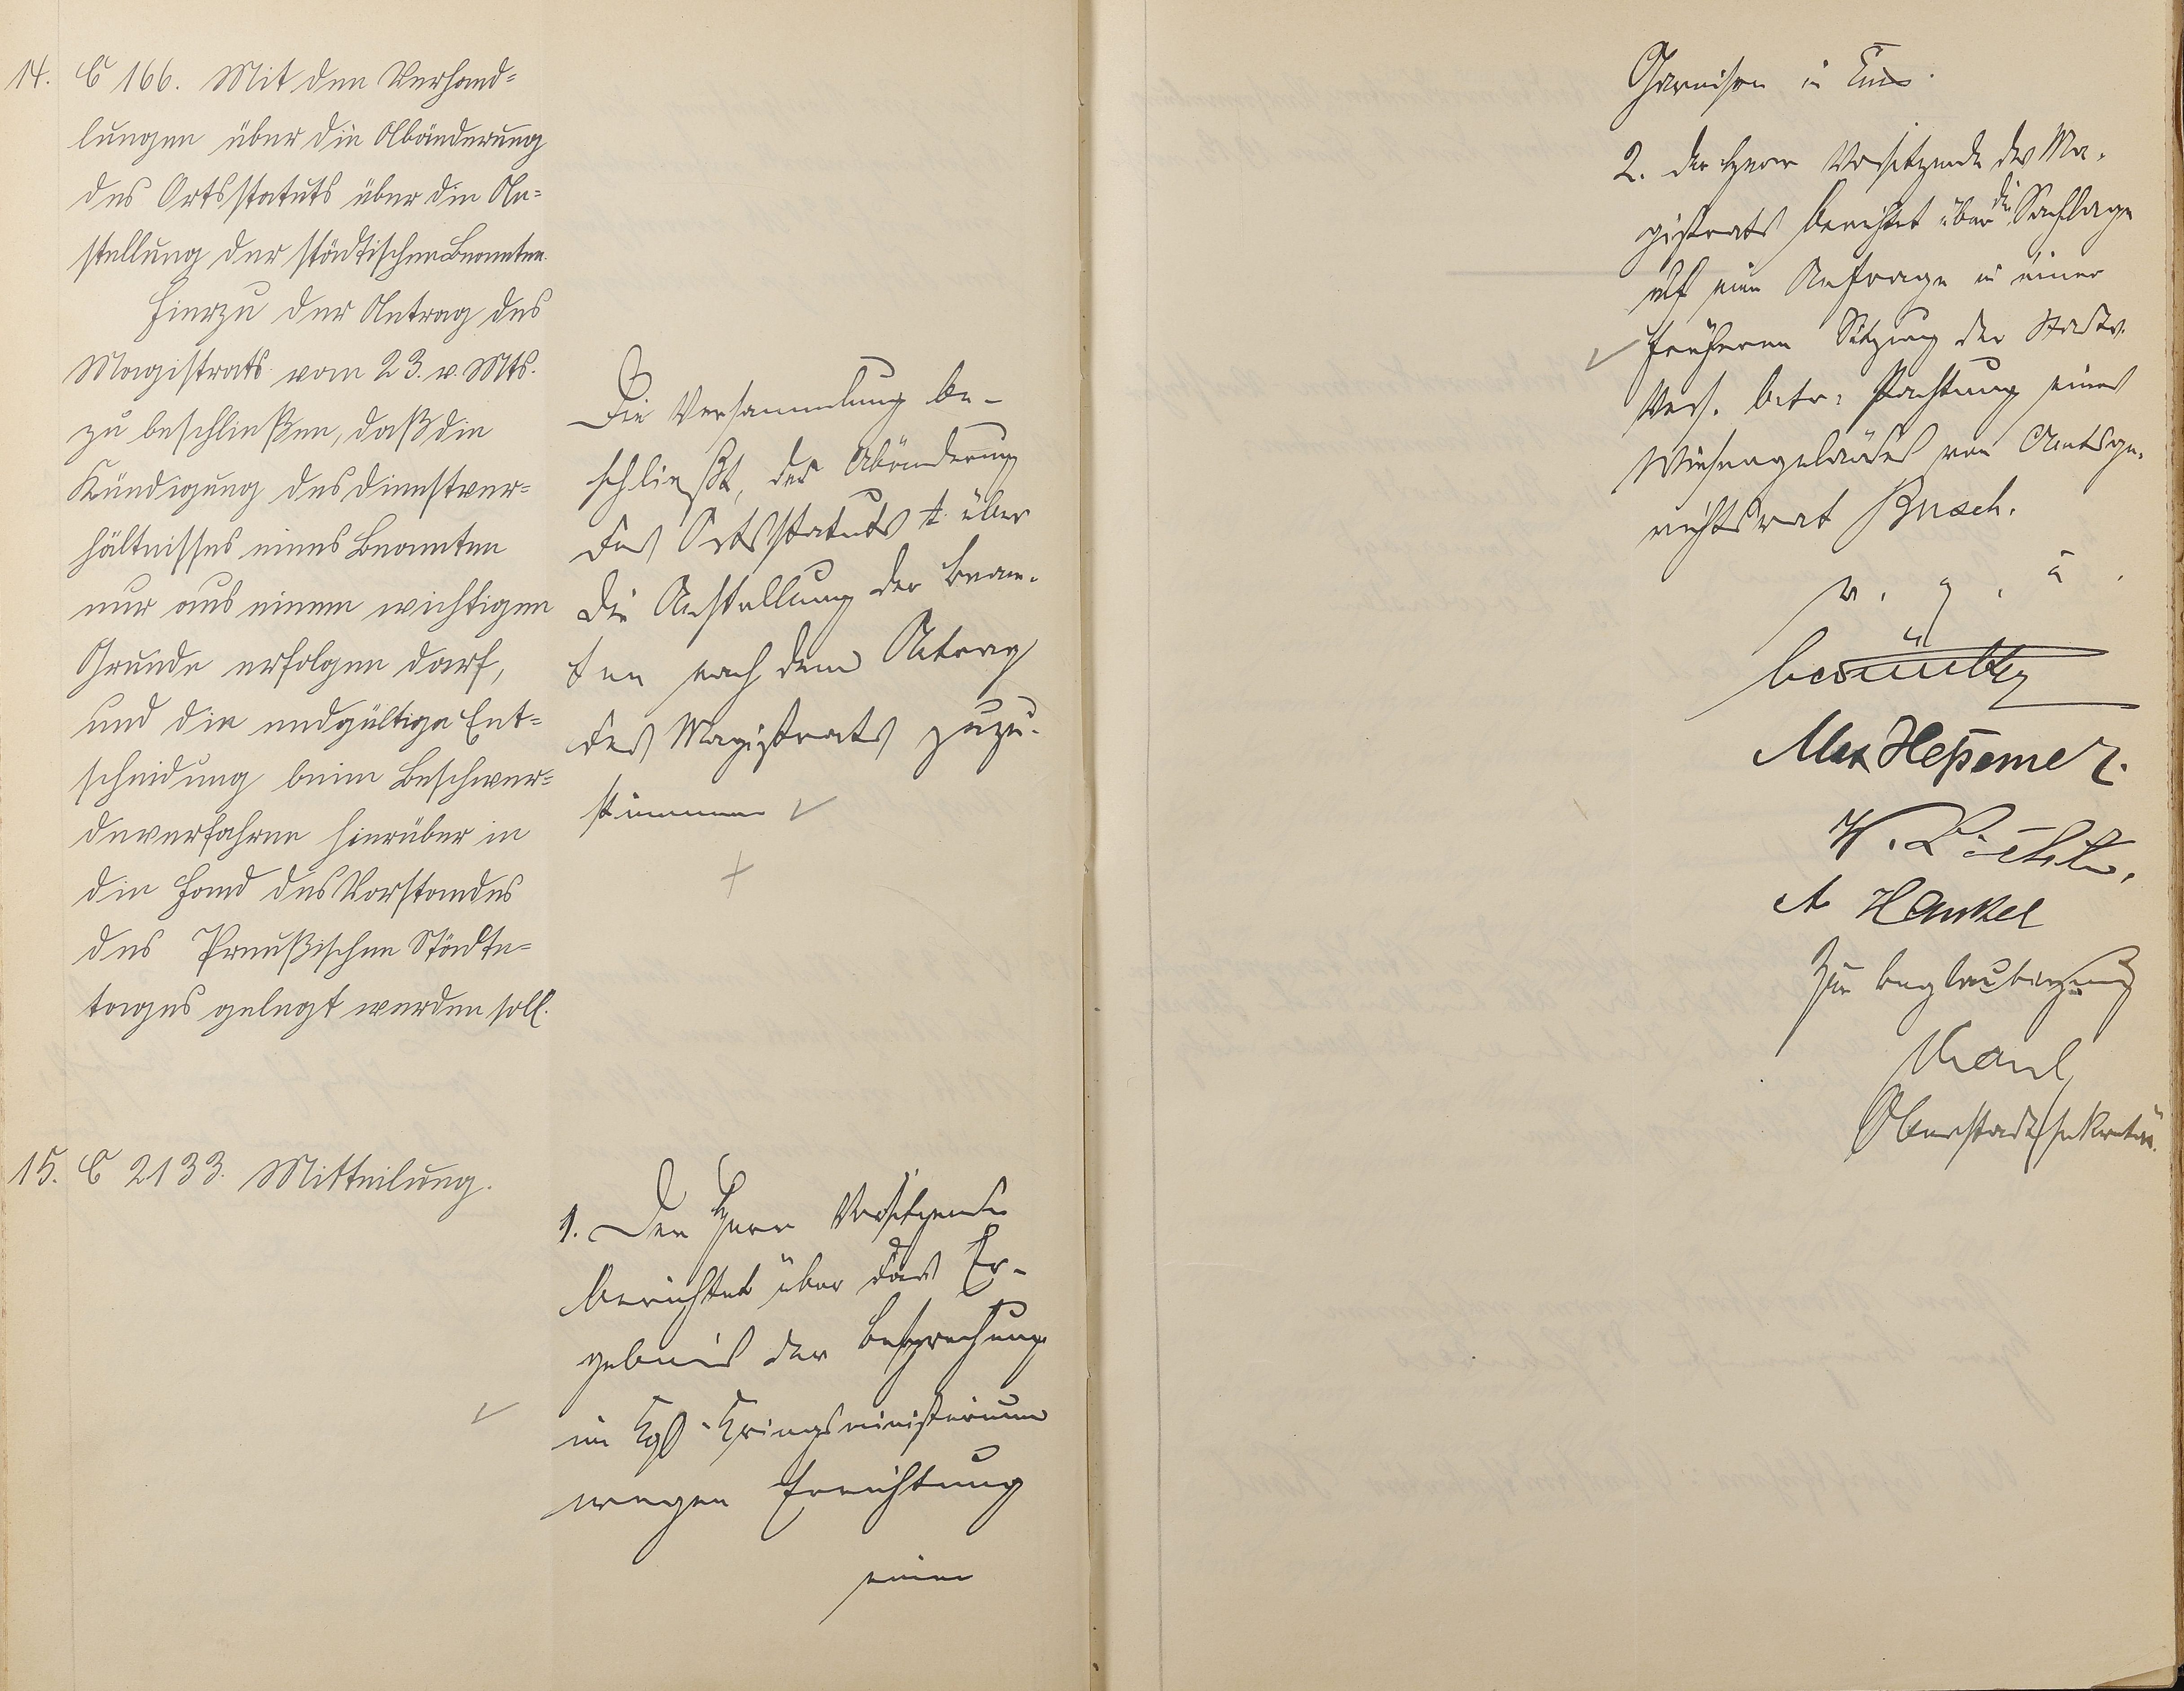 14. C 166. Mit den Verhand=
lungen über die Abänderung
des Ortsstatuts über die An=
stellung der städtischen Beamten.
Hierzu der Antrag des
Magistrats vom 23. v. Mts.
zu beschließen, daß die
Kündigung des Dienstver=
hältnisses eines Beamten
nur aus einem wichtigen
Grunde erfolgen darf,
und die endgültige Ent=
scheidung beim Beschwer=
deverfahren hierüber in
die Hand des Vorstandes
des Preußischen Städte=
tages gelegt werden soll.
Die Versammlung be-
schließt, der Abänderung
des Ortsstatuts über
die Anstellung der Beam-
ten nach dem Antrag
des Magistrats zuzu-
stimmen
15. C 2133. Mitteilung.
1. Der Herr Vorsitzende
berichtet über das Er-
gebnis der Besprechung
im Kgl. Kriegsministerium
wegen Errichtung
einer
Garnison in Ems.
2. Der Herr Vorsitzende des Ma-
gistrats berichtet über die Sachlage
auf eine Anfrage in einer
früheren Sitzung der Stadtv.
Vers. betr. Pachtung eines
Wiesengeländes von Amtsge-
richtsrat Busch.
v. g. u.
Max Heßemer.
W. Richter.
A Hankel
Zur Beglaubigung
Kaul
Oberstadtsekretär.